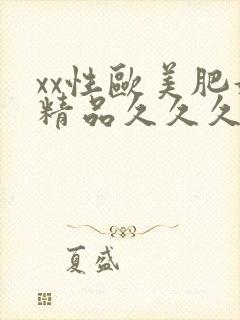 xx性歐美肥
精品久久久
夏盛